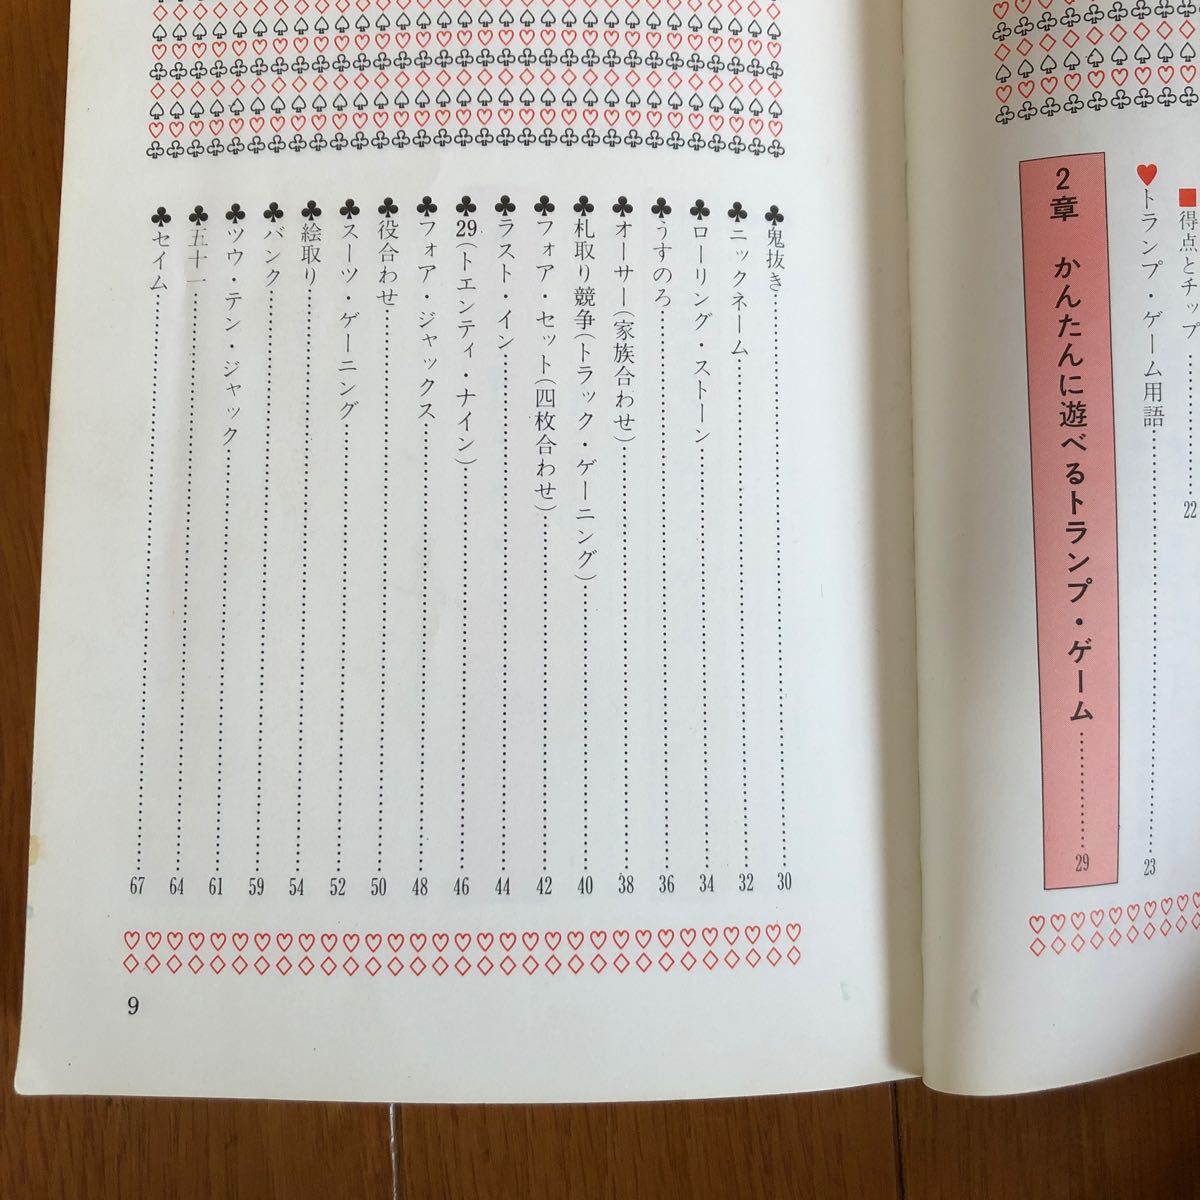 ■得点とチップ……22
♥トランプ・ゲーム用語……23
2章 かんたんに遊べるトランプ・ゲーム……29
♣鬼抜き……30
♣ニックネーム……32
♣ローリング・ストーン……34
♣うすのろ……36
♣オーサー(家族合わせ)……38
♣札取り競争(トラック・ゲーニング)……40
♣フォア・セット(四枚合わせ)……42
♣ラスト・イン……44
♣29(トエンティ・ナイン)……46
♣フォア・ジャックス……48
♣役合わせ……50
♣スーツ・ゲーニング……52
♣絵取り……54
♣バンク……59
♣ツウ・テン・ジャック……61
♣五十一……64
♣セイム……67
9